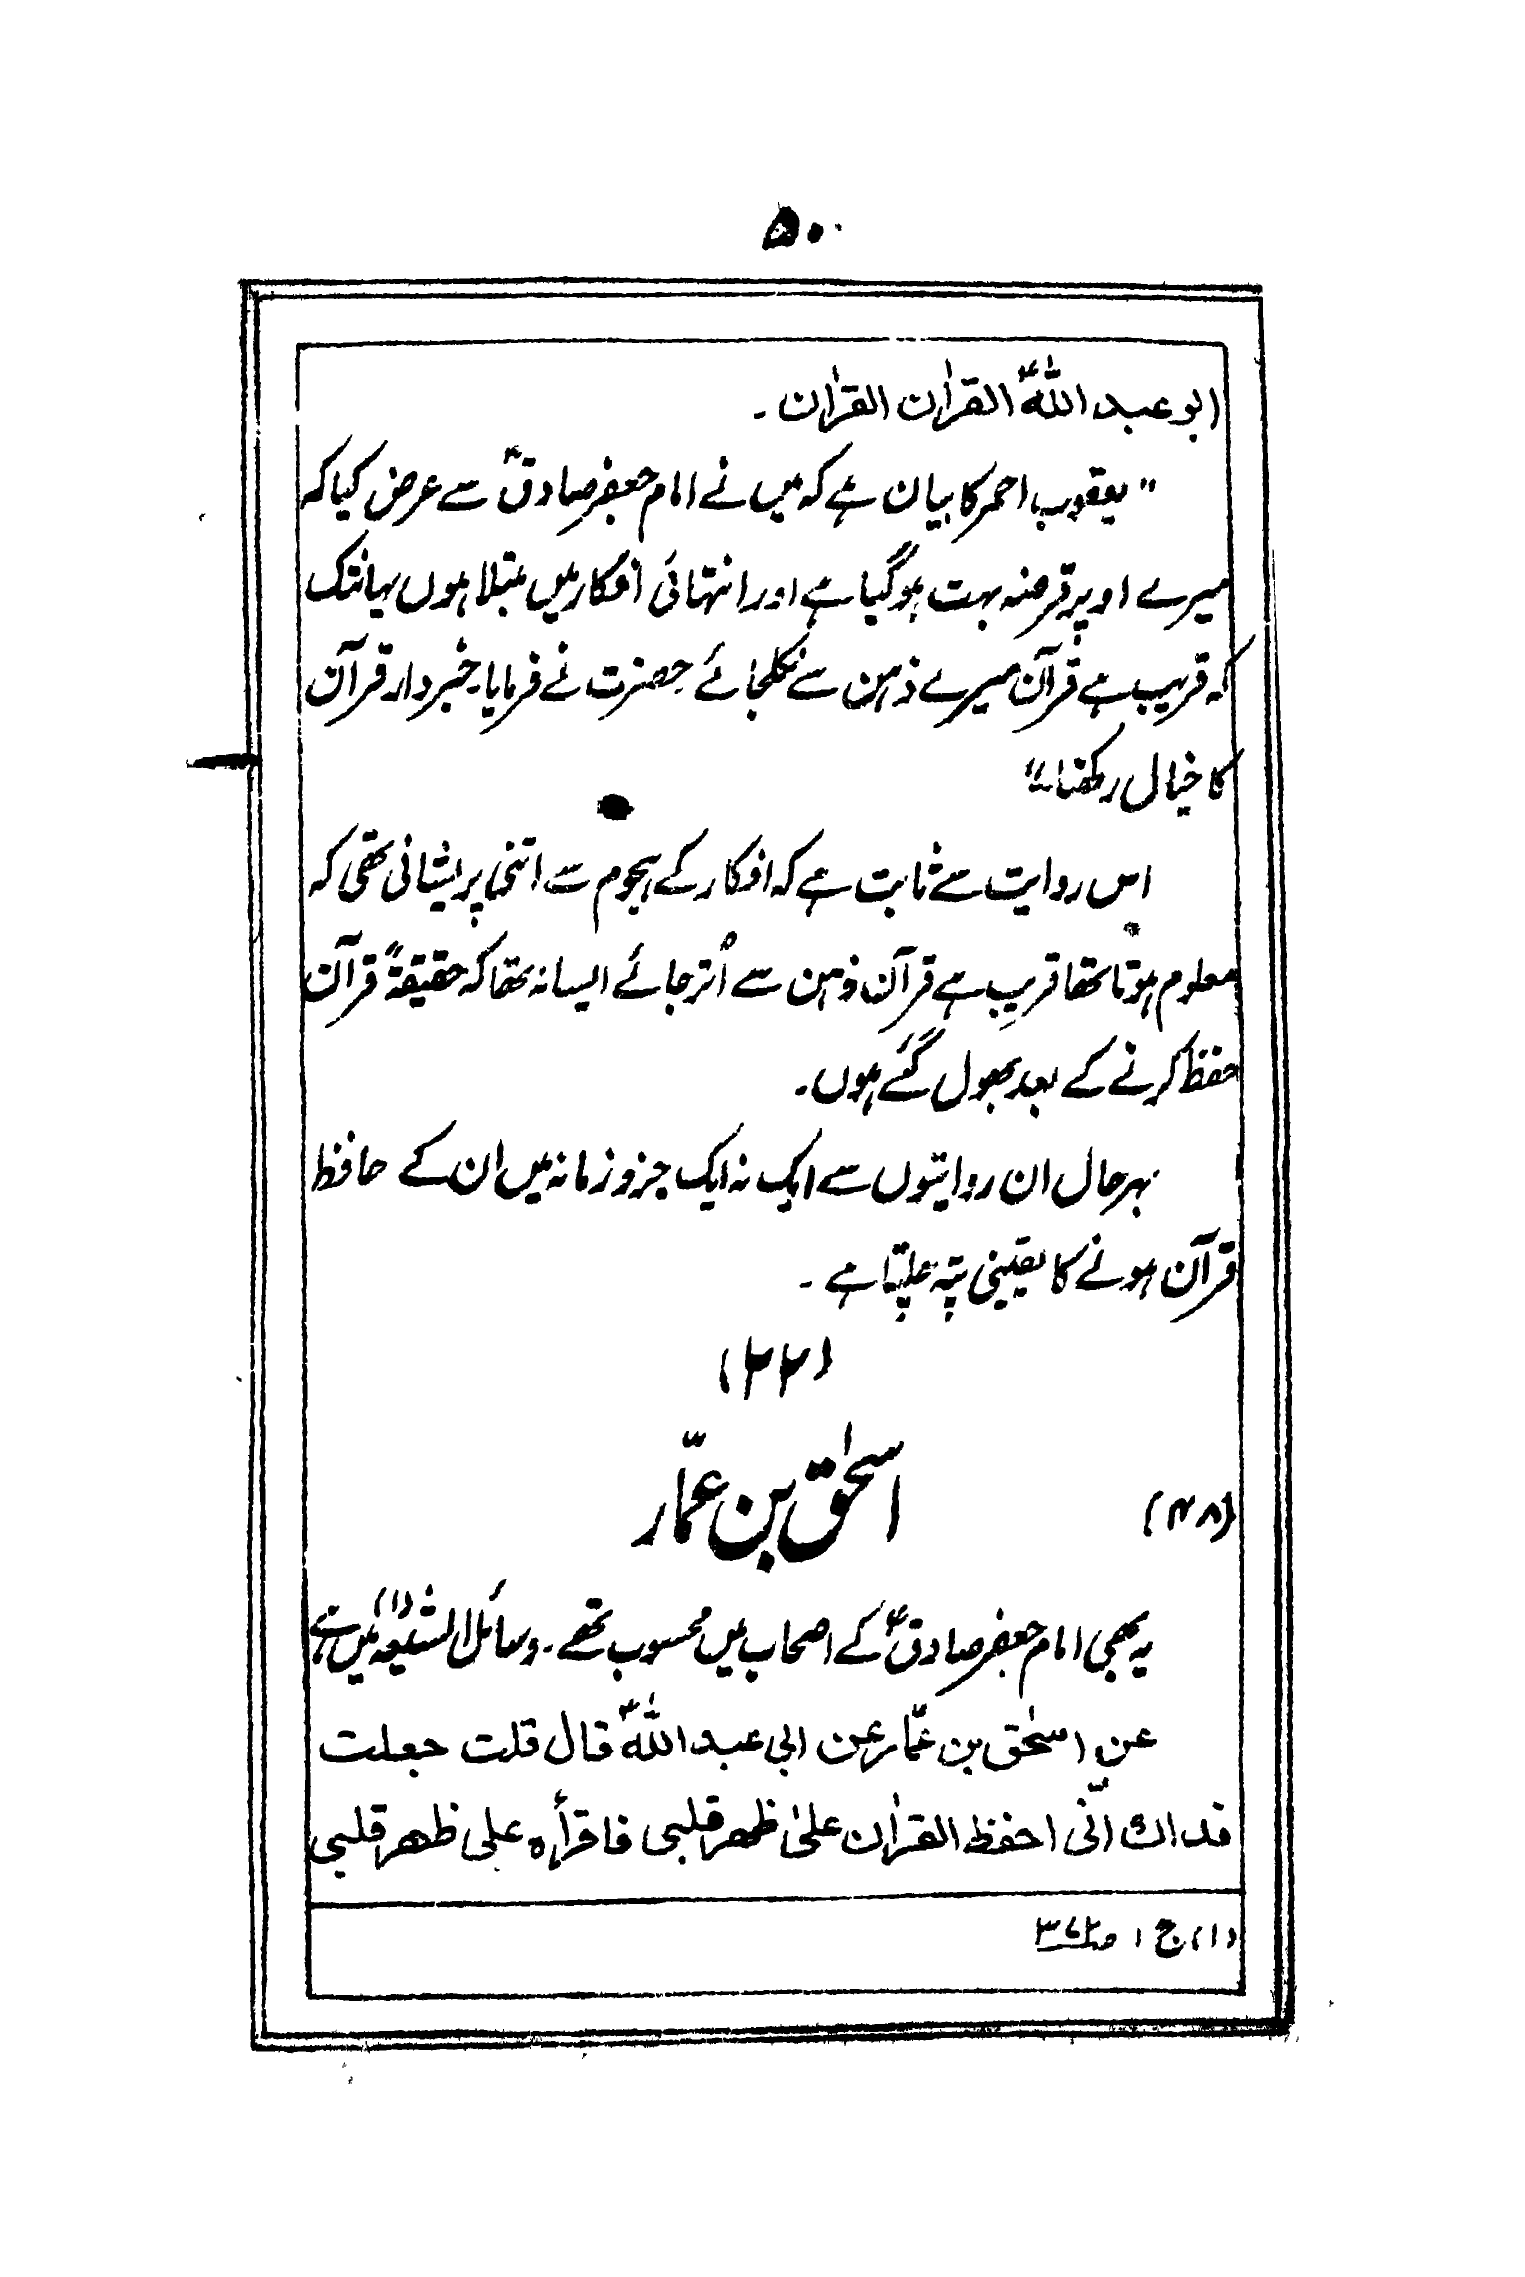 ۵۰
ابو عبد اللہؑ القراٰن القراٰن ۔
"یعقوب احمر کا بیان ہے کہ میں نے امام جعفر صادقؑ سے عرض کیا کہ
میرے اوپر قرضہ بہت ہو گیا ہے اور انتہائی افکار میں مبتلا ہوں یہانتک
کہ قریب ہے قرآن میرے ذہن سے نکلجائے حضرت نے فرمایا۔ خبردار قرآن
کا خیال رکھنا۔"
اس روایت سے ثابت ہے کہ افکار کے ہجوم سے اتنی پریشانی تھی کہ
معلوم ہوتا تھا قریب ہے قرآن ذہن سے اُتر جائے ایسا نہ تھا کہ حقیقۃً قرآن
حفظ کرنے کے بعد بھول گئے ہوں۔
بہرحال ان روایتوں سے ایک نہ ایک جزو زمانہ میں ان کے حافظ
قرآن ہونے کا یقینی پتہ چلتا ہے ۔
(۲۲)
(۴۸) اسحٰق بن عمّار
یہ بھی امام جعفر صادقؑ کے اصحاب میں محسوب تھے ۔ وسائل الشیعہ(۱) میں ہے
عن اسحٰق بن عمّار عن ابی عبد اللہؑ قال قلت جعلت
فداك انّی احفظ القراٰن علیٰ ظهر قلبی فاقرأہ علی ظهر قلبی
(۱) ج ۱ صـ۳۷۲